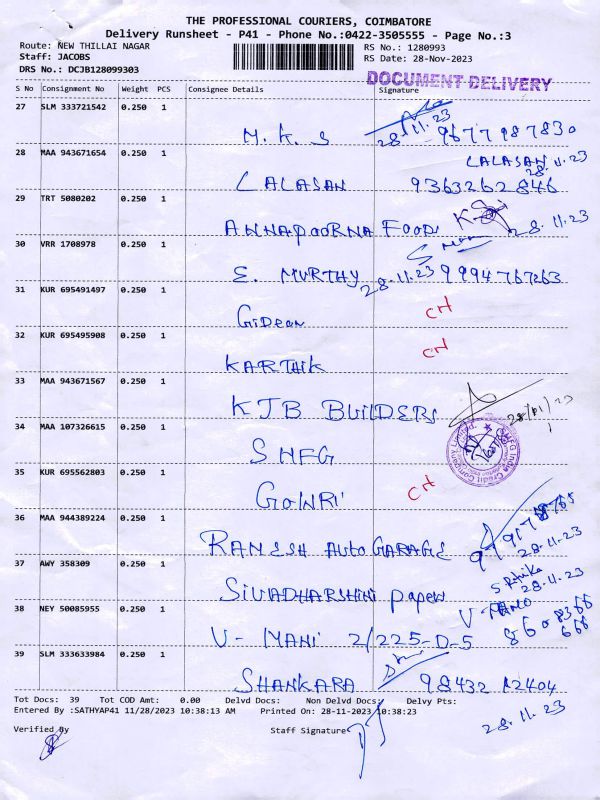 THE PROFESSIONAL COURIERS, COIMBATORE
Delivery Runsheet - P41 - Phone No.:0422-3505555 - Page No.:3
Route: NEW THILLAI NAGAR
RS No.: 1280993
Staff: JACOBS
RS Date: 28-Nov-2023
DRS No.: DCJB128099303
DOCUMENT DELIVERY
S No Consignment No Weight PCS Consignee Details Signature
27 SLM 333721542 0.250 1
M.K.S 28.11.23 9677987830
28 MAA 943671654 0.250 1
LALASAN 28.11.23
LALASAN 9363262846
29 TRT 5080202 0.250 1
ANNAPOORNA FOOD 28.11.23
30 VRR 1708978 0.250 1
E. MURTHY 28.11.23 9994767263
31 KUR 695491497 0.250 1
GiDEON CH
32 KUR 695495908 0.250 1
KARTHIK CH
33 MAA 943671567 0.250 1
KJB BUILDERS 28/11/23
34 MAA 107326615 0.250 1
SMFG
SMFG India Credit Company Limited
35 KUR 695562803 0.250 1
GOWRI CH
36 MAA 944389224 0.250 1
RAMESH AUTO GARAGE
28.11.23
37 AWY 358309 0.250 1
28.11.23
SIVADHARSHINI papers
38 NEY 50085955 0.250 1
V-MANI
V- MANI 2/225-D-5
39 SLM 333633984 0.250 1
SHANKARA 98432 12404
Tot Docs: 39 Tot COD Amt: 0.00 Delvd Docs: Non Delvd Docs: Delvy Pts:
Entered By :SATHYAP41 11/28/2023 10:38:13 AM Printed On: 28-11-2023 10:38:23
28.11.23
Verified By Staff Signature